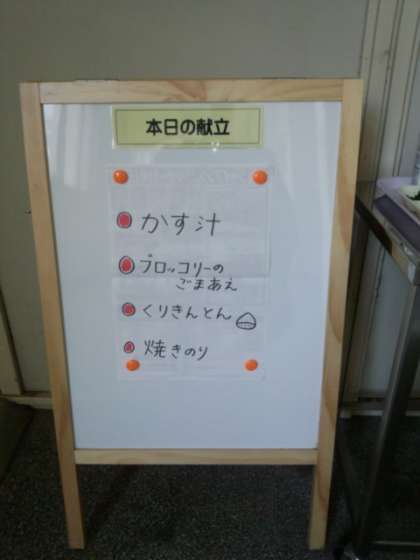 本日の献立
かす汁
ブロッコリーの
ごまあえ
くりきんとん
焼きのり